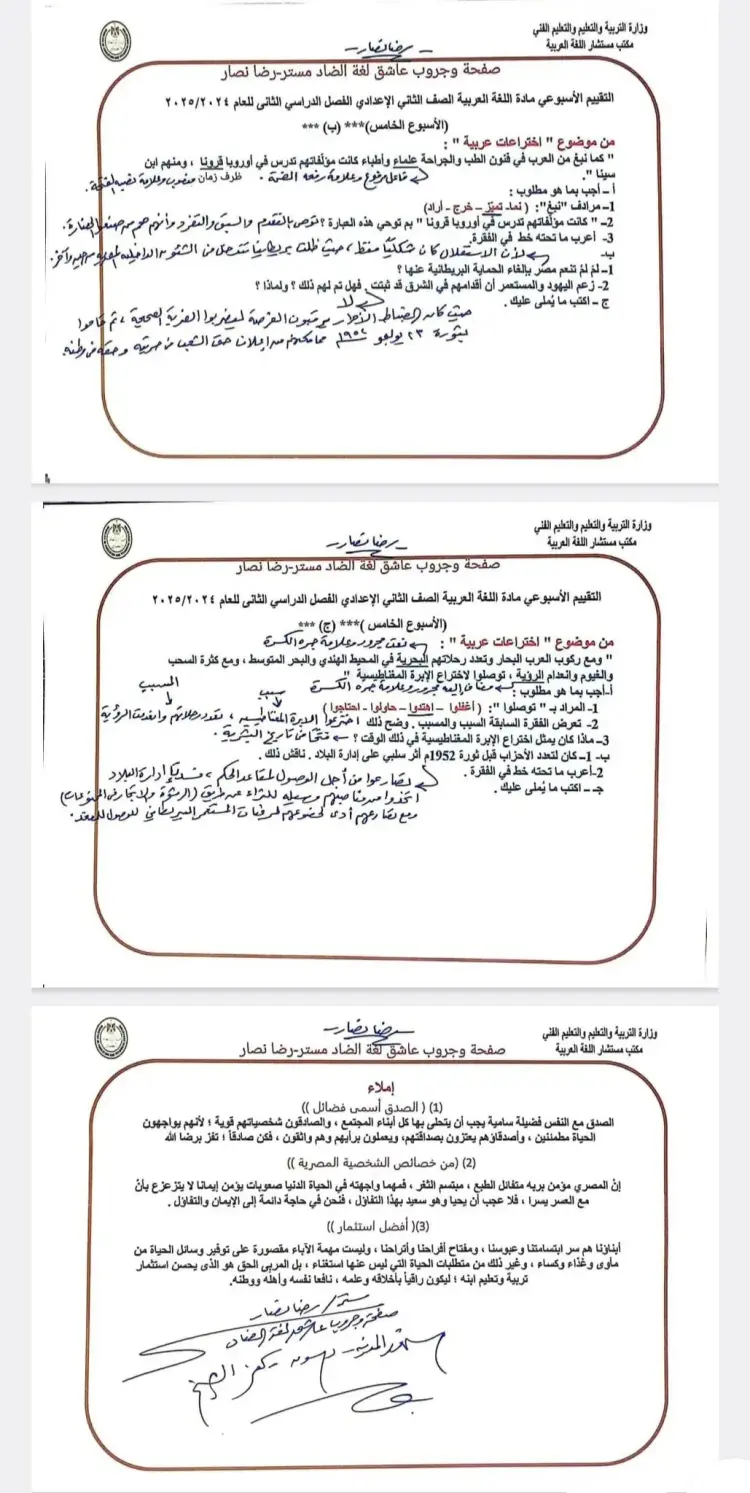 وزارة التربية والتعليم والتعليم الفني
مكتب مستشار اللغة العربية
رضا نصار
صفحة وجروب عاشق لغة الضاد مستر-رضا نصار
التقييم الأسبوعي مادة اللغة العربية الصف الثاني الإعدادي الفصل الدراسي الثانى للعام ٢٠٢٥/٢٠٢٤
(الأسبوع الخامس)*** (ب) ***
من موضوع " اختراعات عربية " :
" كما نبغ من العرب في فنون الطب والجراحة علماء وأطباء كانت مؤلفاتهم تدرس في أوروبا قرونا ، ومنهم ابن
سينا ".
فاعل مرفوع وعلامة رفعه الضمة . ظرف زمان منصوب وعلامة نصبه الفتحة .
أ – أجب بما هو مطلوب :
1– مرادف "نبغ": ( نما- تميّز – خرج - أراد)
2– " كانت مؤلفاتهم تدرس في أوروبا قرونا " بم توحي هذه العبارة ؟ توحى بالتقدم والسبق والتفرد وأنهم هم من صنعوا الحضارة.
3– أعرب ما تحته خط في الفقرة.
ب- لأن الاستقلال كان شكليًا فقط ، حيث ظلت بريطانيا تتدخل فى الشئون الداخلية
1– لمَ لمْ تنعم مصر بإلغاء الحماية البريطانية عنها ؟
2- زعم اليهود والمستعمر أن أقدامهم في الشرق قد ثبتت. فهل تم لهم ذلك ؟ ولماذا ؟
لا
ج – اكتب ما يُملى عليك.
حيث كان الضباط الأحرار يرتقبون الفرصة ليضربوا الضربة الصحيحة ، ثم قاموا
بثورة ٢٣ يوليو ١٩٥٢ م مما مكنهم من إعلان حق الشعب فى حريته وحقه فى وطنه.
وزارة التربية والتعليم والتعليم الفني
مكتب مستشار اللغة العربية
رضا نصار
صفحة وجروب عاشق لغة الضاد مستر-رضا نصار
التقييم الأسبوعي مادة اللغة العربية الصف الثاني الإعدادي الفصل الدراسي الثانى للعام ٢٠٢٥/٢٠٢٤
(الأسبوع الخامس )*** (ج) ***
من موضوع " اختراعات عربية " : نعت مجرور وعلامة جره الكسرة
" ومع ركوب العرب البحار وتعدد رحلاتهم البحرية في المحيط الهندي والبحر المتوسط ، ومع كثرة السحب
والغيوم وانعدام الرؤية ، توصلوا لاختراع الإبرة المغناطيسية "
أ-أجب بما هو مطلوب : مضاف إليه مجرور وعلامة جره الكسرة سبب المسبب
1- المراد بـ " توصلوا": ( أغفلوا – اهتدوا – حاولوا - احتاجوا )
2- تعرض الفقرة السابقة السبب والمسبب . وضح ذلك اخترعوا الإبرة المغناطيسية ، تعدد رحلاتهم وانعدمت الرؤية
3– ماذا كان يمثل اختراع الإبرة المغناطيسية في ذلك الوقت ؟ فتحًا فى تاريخ البشرية .
ب- 1– كان لتعدد الأحزاب قبل ثورة 1952م أثر سلبي على إدارة البلاد . ناقش ذلك .
2-أعرب ما تحته خط في الفقرة . تصارعوا من أجل الوصول لمقاعد الحكم ، إدارة البلاد
جـ – اكتب ما يُملى عليك . اتخذوا من مناصبهم وسيلة للثراء عن طريق (الرشوة
ومع تصارعهم أدى لخضوعهم لرغبات المستعمر البريطاني للوصول للحكم .
وزارة التربية والتعليم والتعليم الفني
مكتب مستشار اللغة العربية
رضا نصار
صفحة وجروب عاشق لغة الضاد مستر-رضا نصار
إملاء
(1) ( الصدق أسمى فضائل ))
الصدق مع النفس فضيلة سامية يجب أن يتحلى بها كل أبناء المجتمع ، والصادقون شخصياتهم قوية ؛ لأنهم يواجهون
الحياة مطمئنين ، وأصدقاؤهم يعتزون بصداقتهم، ويعملون برأيهم وهم واثقون ، فكن صادقاً ؛ تفز برضا الله
(2) (من خصائص الشخصية المصرية ))
إنّ المصري مؤمن بربه متفائل الطبع ، مبتسم الثغر ، فمهما واجهته في الحياة الدنيا صعوبات يؤمن إيمانا لا يتزعزع بأنّ
مع العسر يسرا ، فلا عجب أن يحيا وهو سعيد بهذا التفاؤل ، فنحن في حاجة دائمة إلى الإيمان والتفاؤل .
(3)( أفضل استثمار ))
أبناؤنا هم سر ابتسامتنا وعبوسنا ، ومفتاح أفراحنا وأتراحنا ، وليست مهمة الآباء مقصورة على توفير وسائل الحياة من
مأوى وغذاء وكساء ، وغير ذلك من متطلبات الحياة التي ليس عنها استغناء ، بل المربي الحق هو الذى يحسن استثمار
تربية وتعليم ابنه ؛ ليكون راقياً بأخلاقه وعلمه ، نافعا نفسه وأهله ووطنه.
مستر/ رضا نصار
صفحة وجروب عاشق لغة الضاد
دسوق - كفر الشيخ